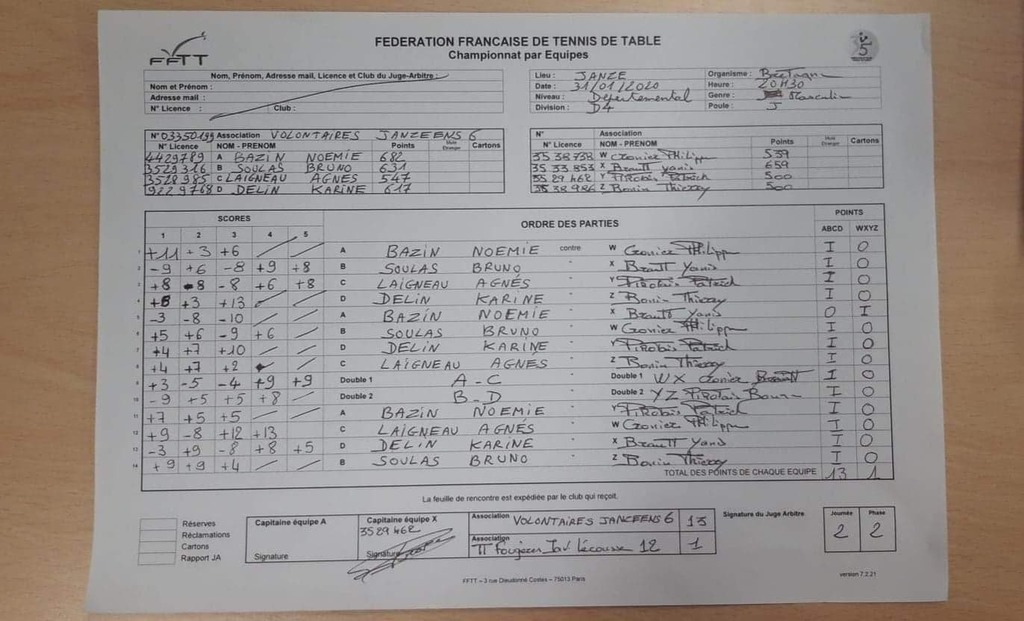 FFTT
FEDERATION FRANCAISE DE TENNIS DE TABLE
Championnat par Equipes
Nom, Prénom, Adresse mail, Licence et Club du Juge-Arbitre :
Nom et Prénom :
Adresse mail :
N° Licence : Club :
Lieu : JANZE Organisme : Bretagne
Date : 31/01/2020 Heure : 20H30
Niveau : Départemental Genre : Masculin
Division : D4 Poule : J
N° 03350199 Association VOLONTAIRES JANZEENS 6
N° Licence NOM - PRENOM Points Mute Etranger Cartons
4429789 A BAZIN NOEMIE 682
3529316 B SOULAS BRUNO 631
3528985 C LAIGNEAU AGNES 547
9229768 D DELIN KARINE 617
N° Association
N° Licence NOM - PRENOM Points Mute Etranger Cartons
W Philippe 539
X Yanis 659
3529462 Y Patrick 500
3538986 Z Bonin Thierry 500
SCORES ORDRE DES PARTIES POINTS
1 2 3 4 5 ABCD WXYZ
1 +11 +3 +6 / / A BAZIN NOEMIE contre W Philippe I O
2 -9 +6 -8 +9 +8 B SOULAS BRUNO " X Yanis I O
3 +8 -8 -8 +6 +8 C LAIGNEAU AGNÉS " Y Patrick I O
4 +6 +3 +13 / / D DELIN KARINE " Z Bonin Thierry I O
5 -3 -8 -10 / / A BAZIN NOEMIE " X Yanis O I
6 +5 +6 -9 +6 / B SOULAS BRUNO " W Philippe I O
7 +4 +7 +10 / / D DELIN KARINE " Y Patrick I O
8 +4 +7 +2 / / C LAIGNEAU AGNES " Z Bonin Thierry I O
9 +3 -5 -4 +9 +9 Double 1 A-C " Double 1 WX I O
10 -9 +5 +5 +8 / Double 2 B-D " Double 2 YZ I O
11 +7 +5 +5 / / A BAZIN NOEMIE " Y Patrick I O
12 +9 -8 +12 +13 C LAIGNEAU AGNÉS " W Philippe I O
13 -3 +9 -8 +8 +5 D DELIN KARINE " X Yanis I O
14 +9 +9 +4 / / B SOULAS BRUNO " Z Bonin Thierry I O
TOTAL DES POINTS DE CHAQUE EQUIPE 13 1
La feuille de rencontre est expédiée par le club qui reçoit.
Réserves
Réclamations
Cartons
Rapport JA
Capitaine équipe A
Signature
Capitaine équipe X
3529462
Signature
Association VOLONTAIRES JANZEENS 6 13
Association TT Fougères Jav Lécousse 12 1
Signature du Juge Arbitre
Journée Phase
2 2
FFTT – 3 rue Dieudonné Costes – 75013 Paris
version 7.2.21